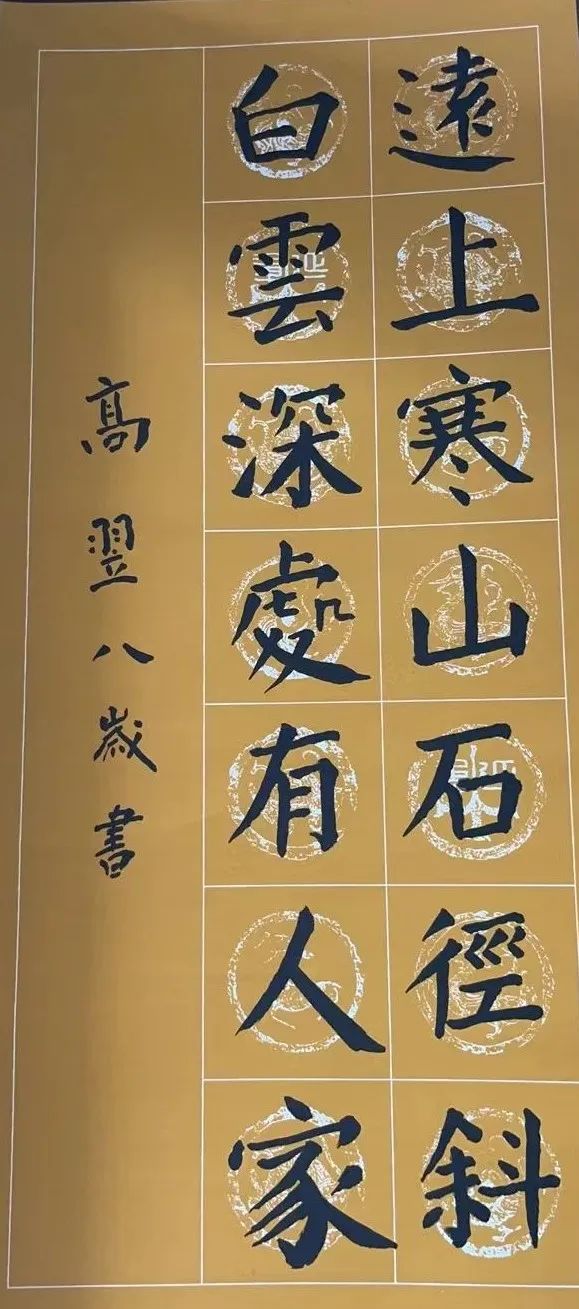 遠上寒山石徑斜
白雲深處有人家
高翌八歲書